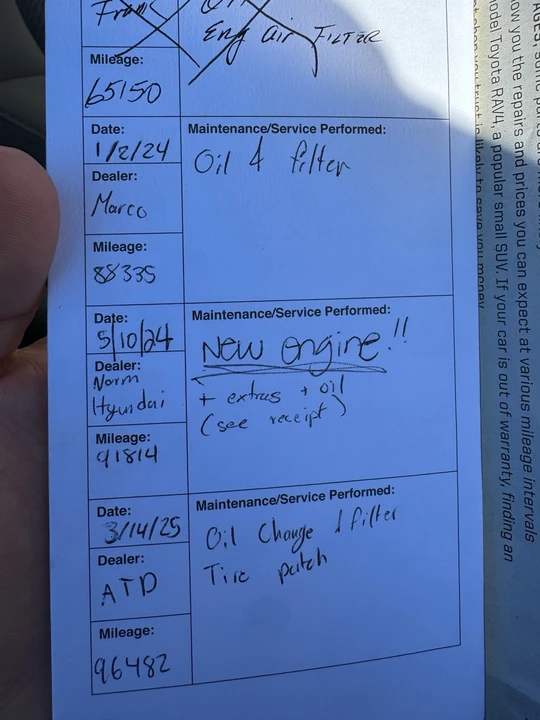 Frank
Eng Air FILTER
Mileage:
65150
Date:
1/2/24
Maintenance/Service Performed:
Oil & filter
Dealer:
Marco
Mileage:
88335
Date:
5/10/24
Maintenance/Service Performed:
New engine!!
+ extras + oil
(see receipt)
Dealer:
Norm
Hyundai
Mileage:
91814
Date:
3/14/25
Maintenance/Service Performed:
Oil Change & filter
Tire patch
Dealer:
ATD
Mileage:
96482
now you the repairs and prices you can expect at various mileage intervals
model Toyota RAV4, a popular small SUV. If your car is out of warranty, finding an
likely to save you money